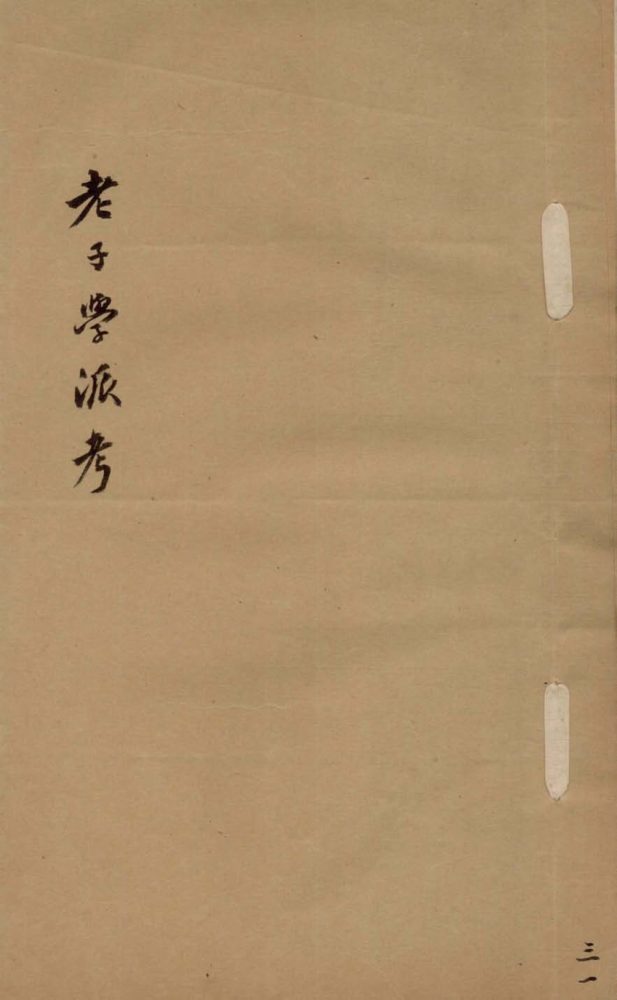 老子學派考
三一